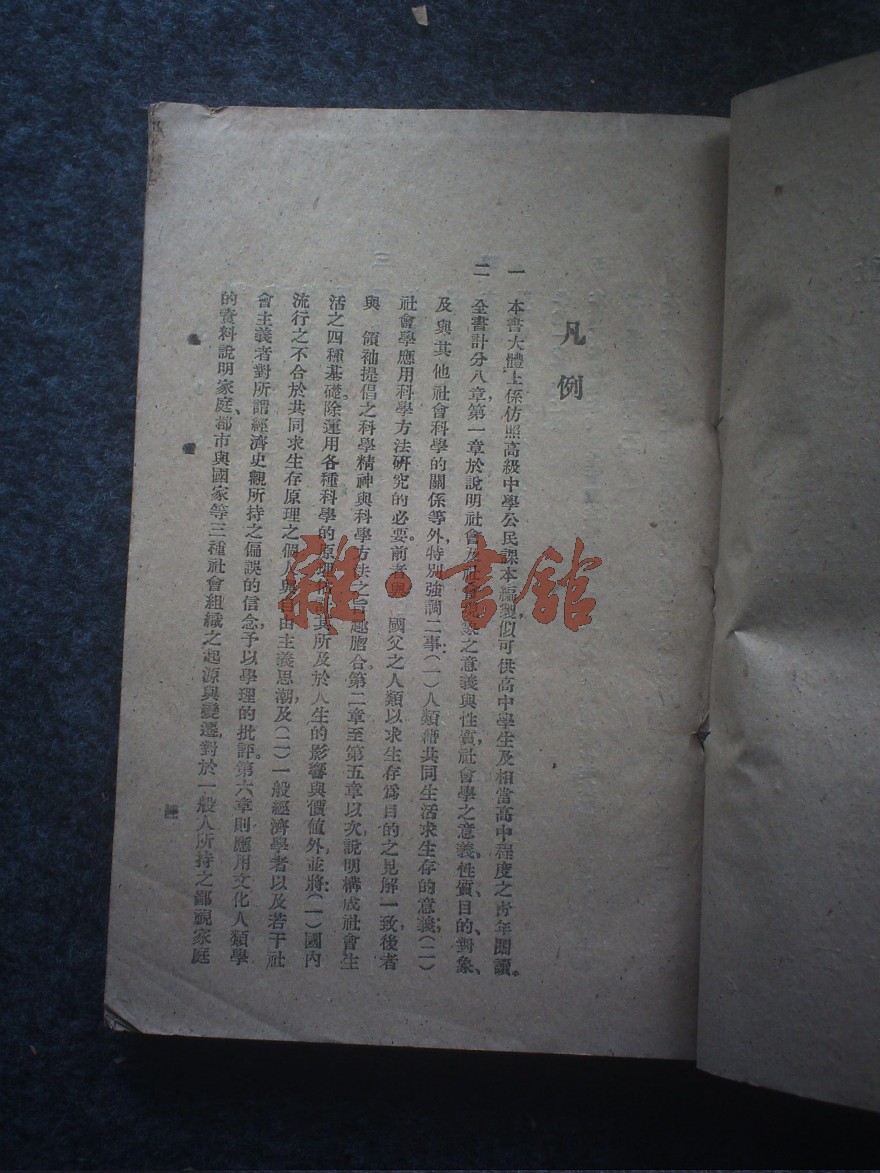 凡例
一 本書大體上係仿照高級中學公民課本編製,似可供高中學生及相當高中程度之靑年閱讀。
二 全書計分八章,第一章於說明社會及社會現象之意義與性質,社會學之意義、性質、目的、對象、
及與其他社會科學的關係等外,特別強調二事:(一)人類藉共同生活求生存的意義;(二)
社會學應用科學方法硏究的必要。前者與 國父之人類以求生存爲目的之見解一致,後者
與 領袖提倡之科學精神與科學方法之旨趣脗合。第二章至第五章以次說明構成社會生
活之四種基礎。除運用各種科學的原理 其所及於人生的影響與價値外,並將:(一)國內
流行之不合於共同求生存原理之個人與自由主義思潮,及(二)一般經濟學者以及若干社
會主義者對所謂經濟史觀所持之偏誤的信念,予以學理的批評。第六章則應用文化人類學
的資料說明家庭、都市與國家等三種社會組織之起源與變遷,對於一般人所持之鄙視家庭
雜·書館